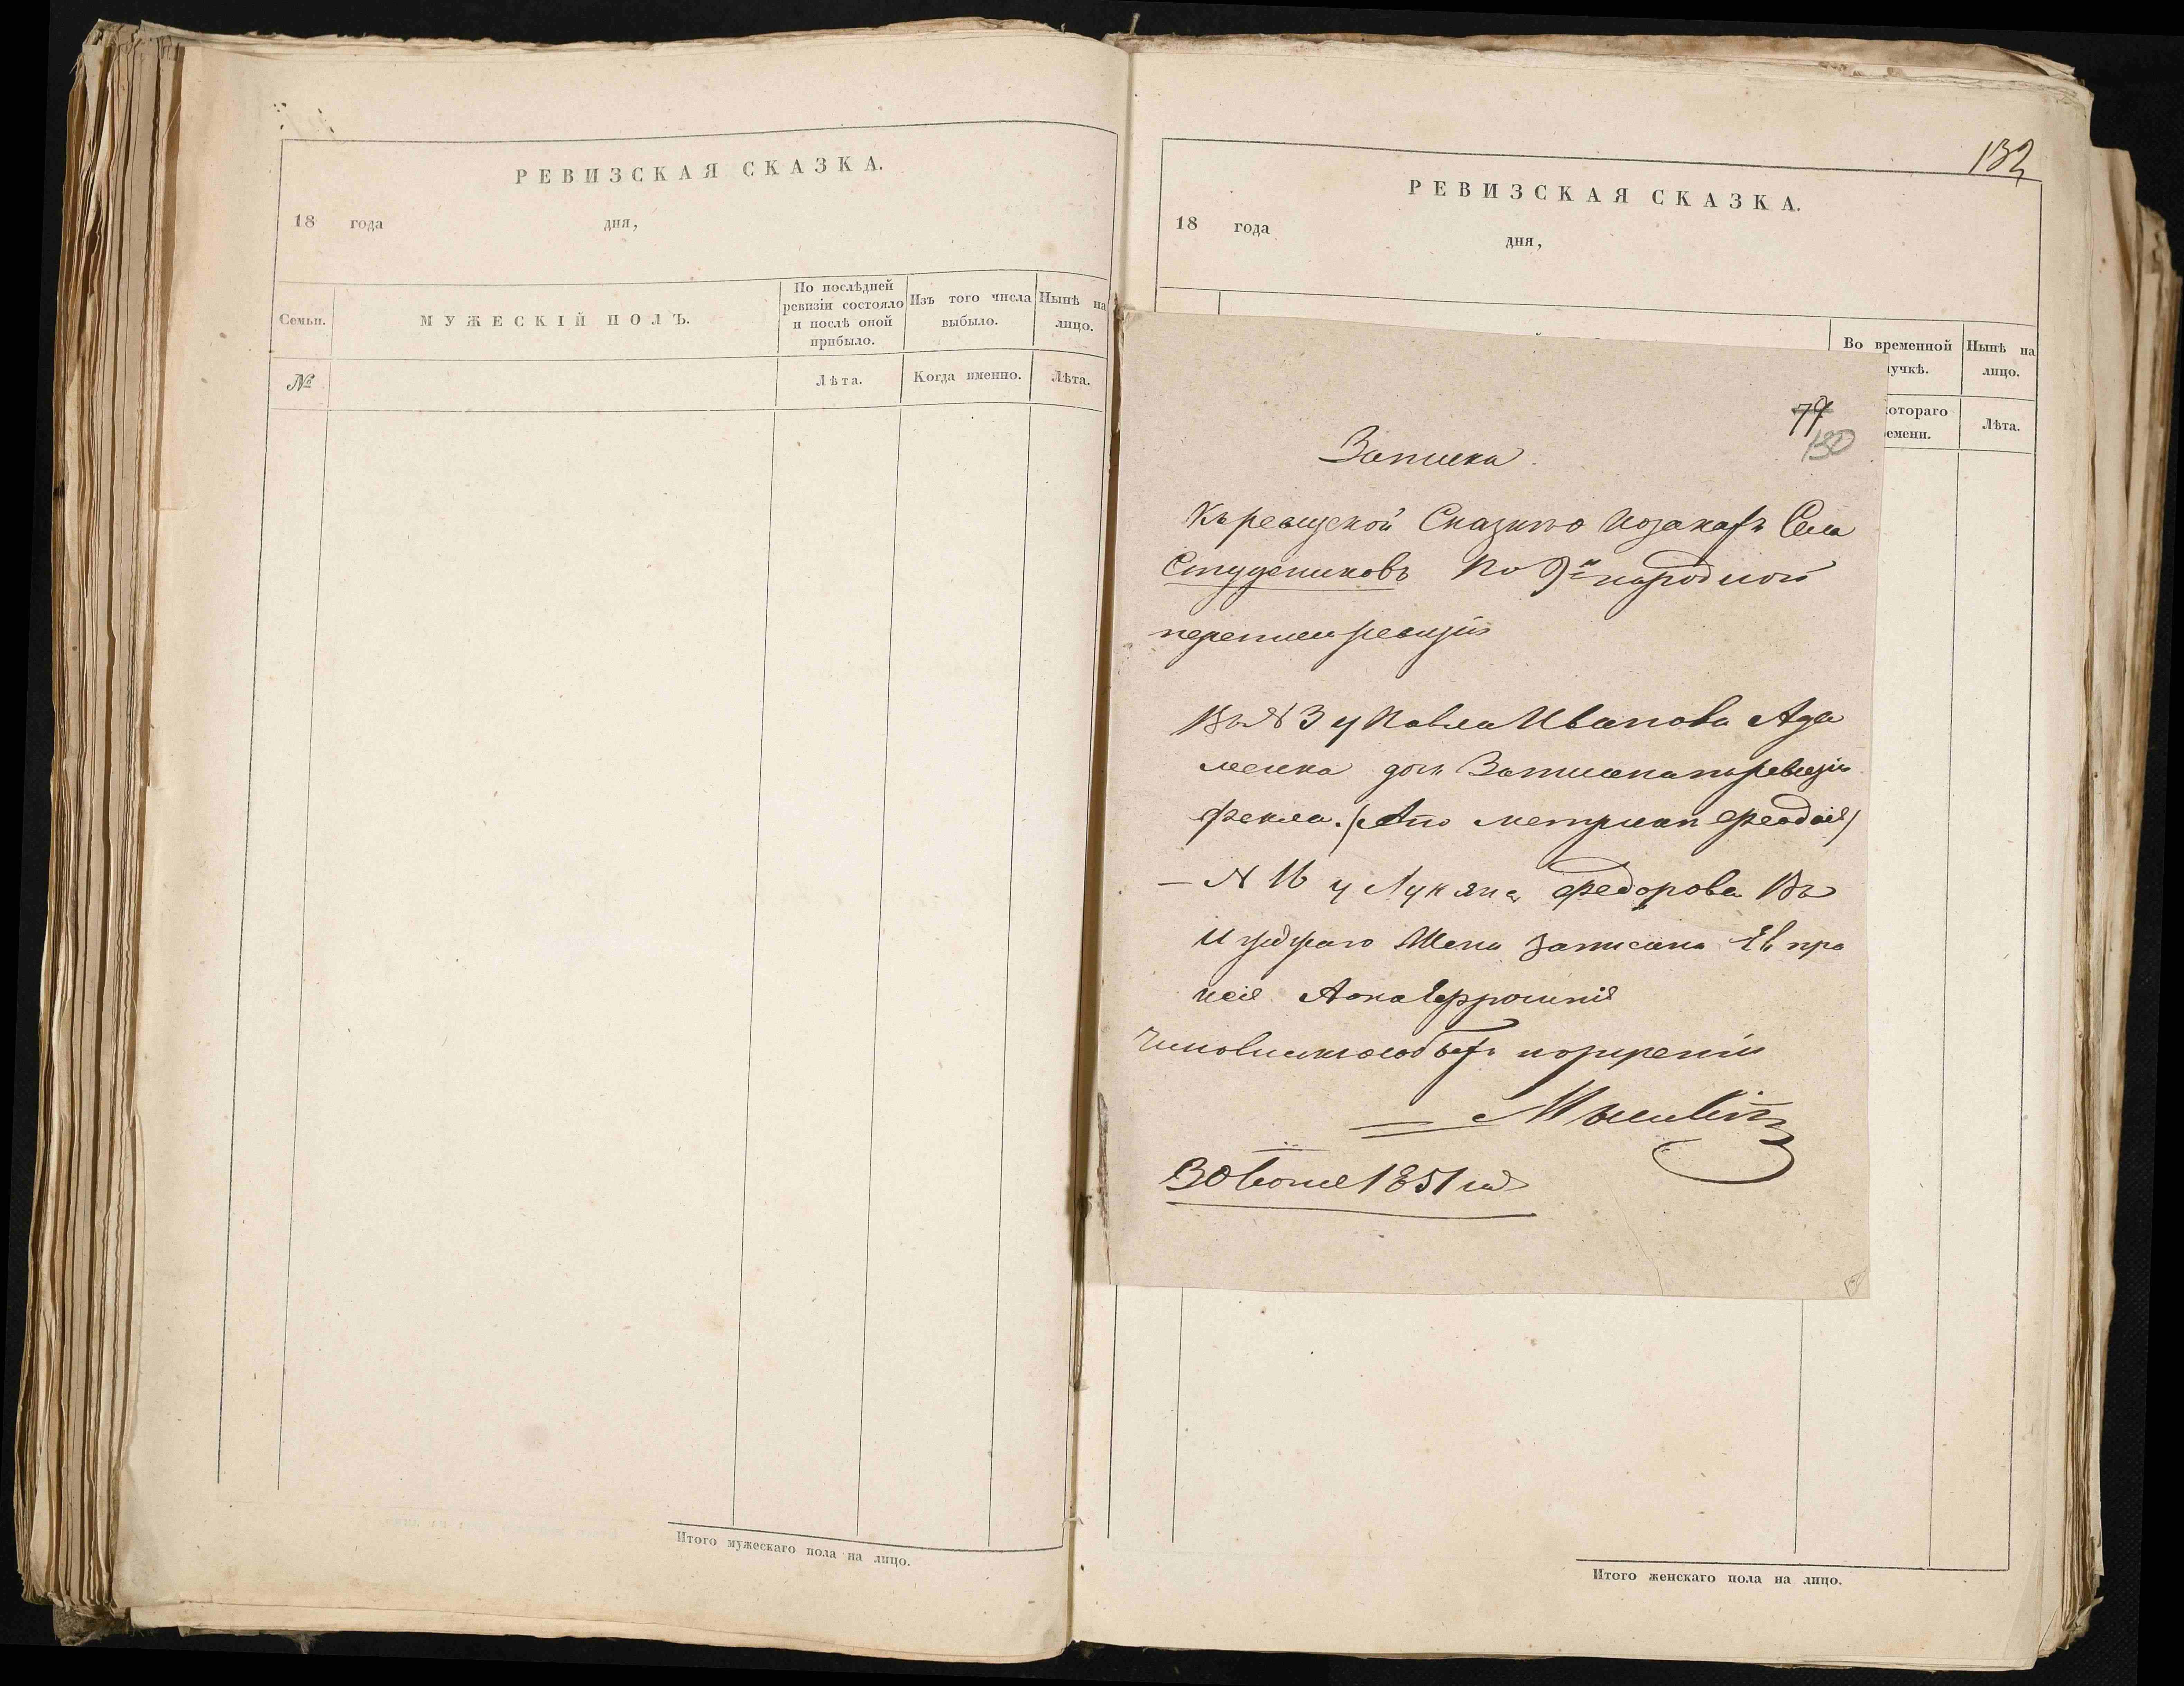 РЕВИЗСКАЯ СКАЗКА.
18 года дня,
Семьи.
МУЖЕСКІЙ ПОЛЪ.
По послѣдней
ревизіи состояло
и послѣ оной
прибыло.
Изъ того числа
выбыло.
Нынѣ на
лицо.
№
Лѣта.
Когда именно.
Лѣта.
Итого мужескаго пола на лицо.
132
РЕВИЗСКАЯ СКАЗКА.
18 года
дня,
Во временной
лучкѣ.
Нынѣ на
лицо.
котораго
емени.
Лѣта.
77
130
Записка
Къ ревизской Сказкѣ о козакахъ Села
Студениковъ По 9й народной
переписи ревизіи
Въ № 3 у Павла Иванова Ада
менка дочь Записана по ревизіи
Фекла. (А по метрикѣ Феодосія)
— № 16 у Лукяна Федорова
жена записана Евпра
ксія А она Ефросинія
Чиновникъ особыхъ порученій
30 Іюня 1851 года
Итого женскаго пола на лицо.